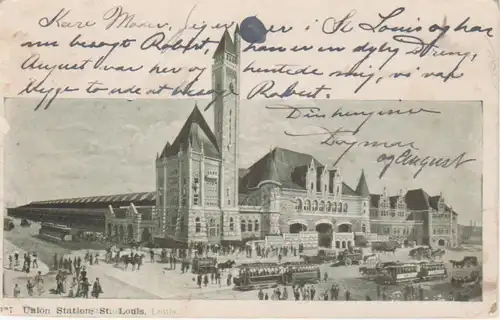 Kære Moder, jeg er her i St Louis og har
nu besøgt Robert, han er en dygtig dreng,
August var her og hentede mig, vi var
begge to ude at besøge Robert.
Din hengivne
Dagmar
og August
Union Station, St. Louis.